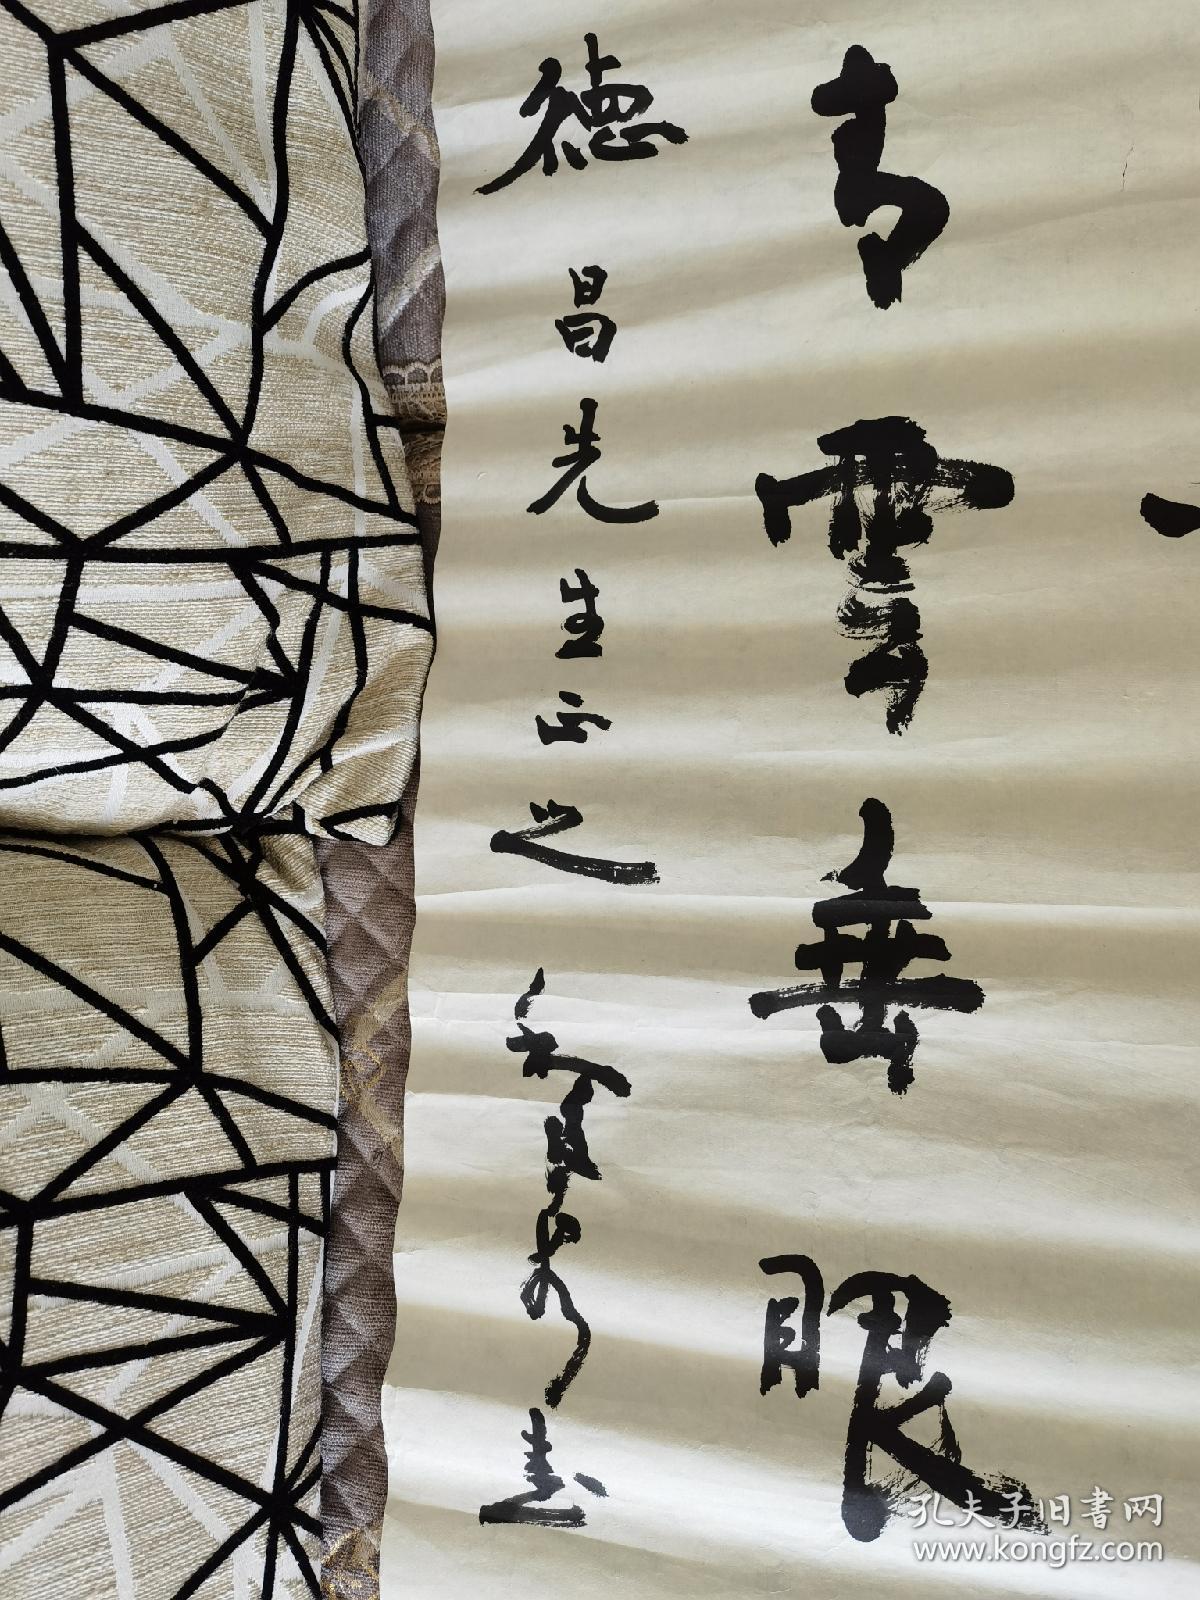 青雲垂眼
德昌先生正之
書
孔夫子旧書网
www.kongfz.com